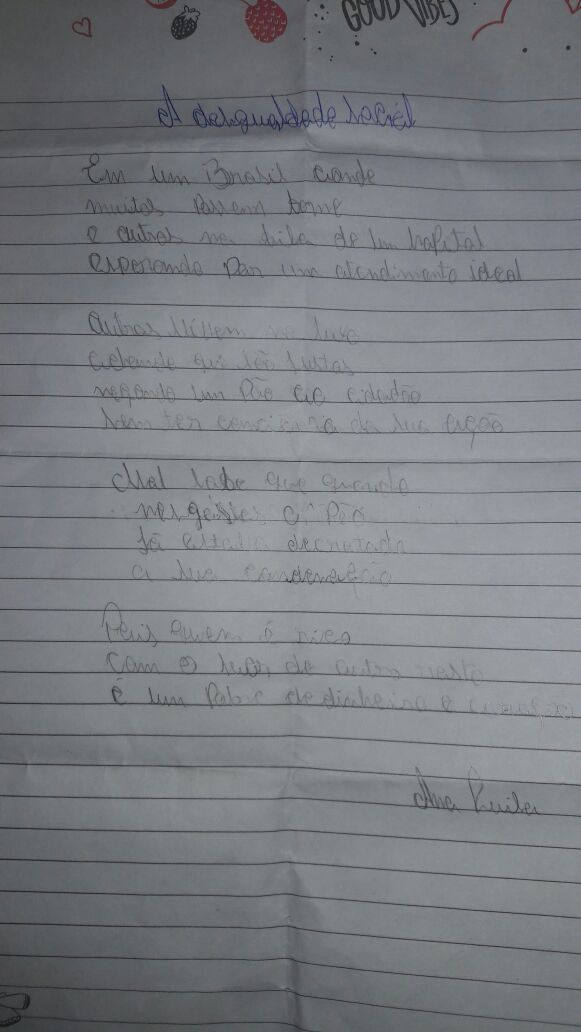 GOOD VIBES
A desigualdade social
Em um Brasil grande
muitos passam fome
e outros na fila de um hospital
esperando por um atendimento ideal
Outros vivem no luxo
achando que são justos
negando um pão ao cidadão
sem ter conciencia da sua ação
Mal sabe que quando
o pão
já estava decretada
a sua condenação
Pois quem é rico
com o suor de outro
é um pobre de dinheiro e
Ana